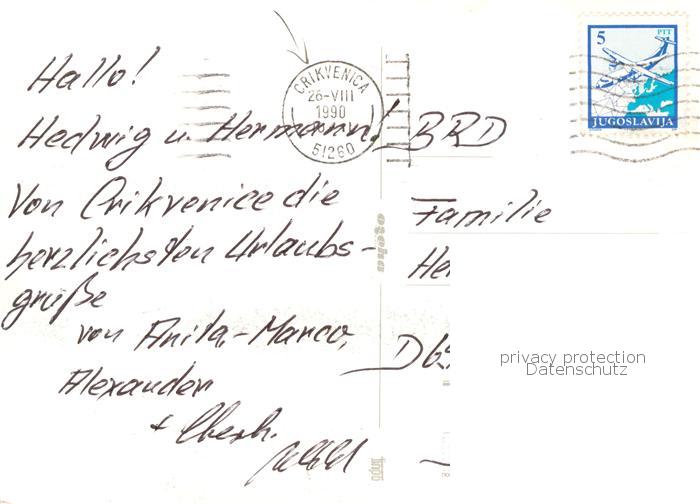 Hallo!
Hedwig u. Hermann!
Von Crikvenice die
herzlichsten Urlaubs-
grüße
von Anita, Marco,
Alexander
+
CRIKVENICA
26-VIII
1990
51260
5
PTT
JUGOSLAVIJA
BRD
Familie
He
D69
privacy protection
Datenschutz